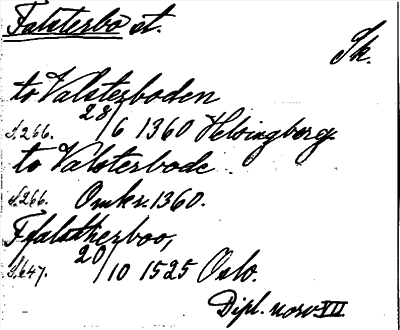 Falsterbo st.
Sk.
to Valsterboden
s. 266. 28/6 1360 Helsingborg.
to Valsterbode
s. 266. Omkr. 1360.
Ffalstherboo,
s. 647. 20/10 1525 Oslo.
Dipl. norv. VII